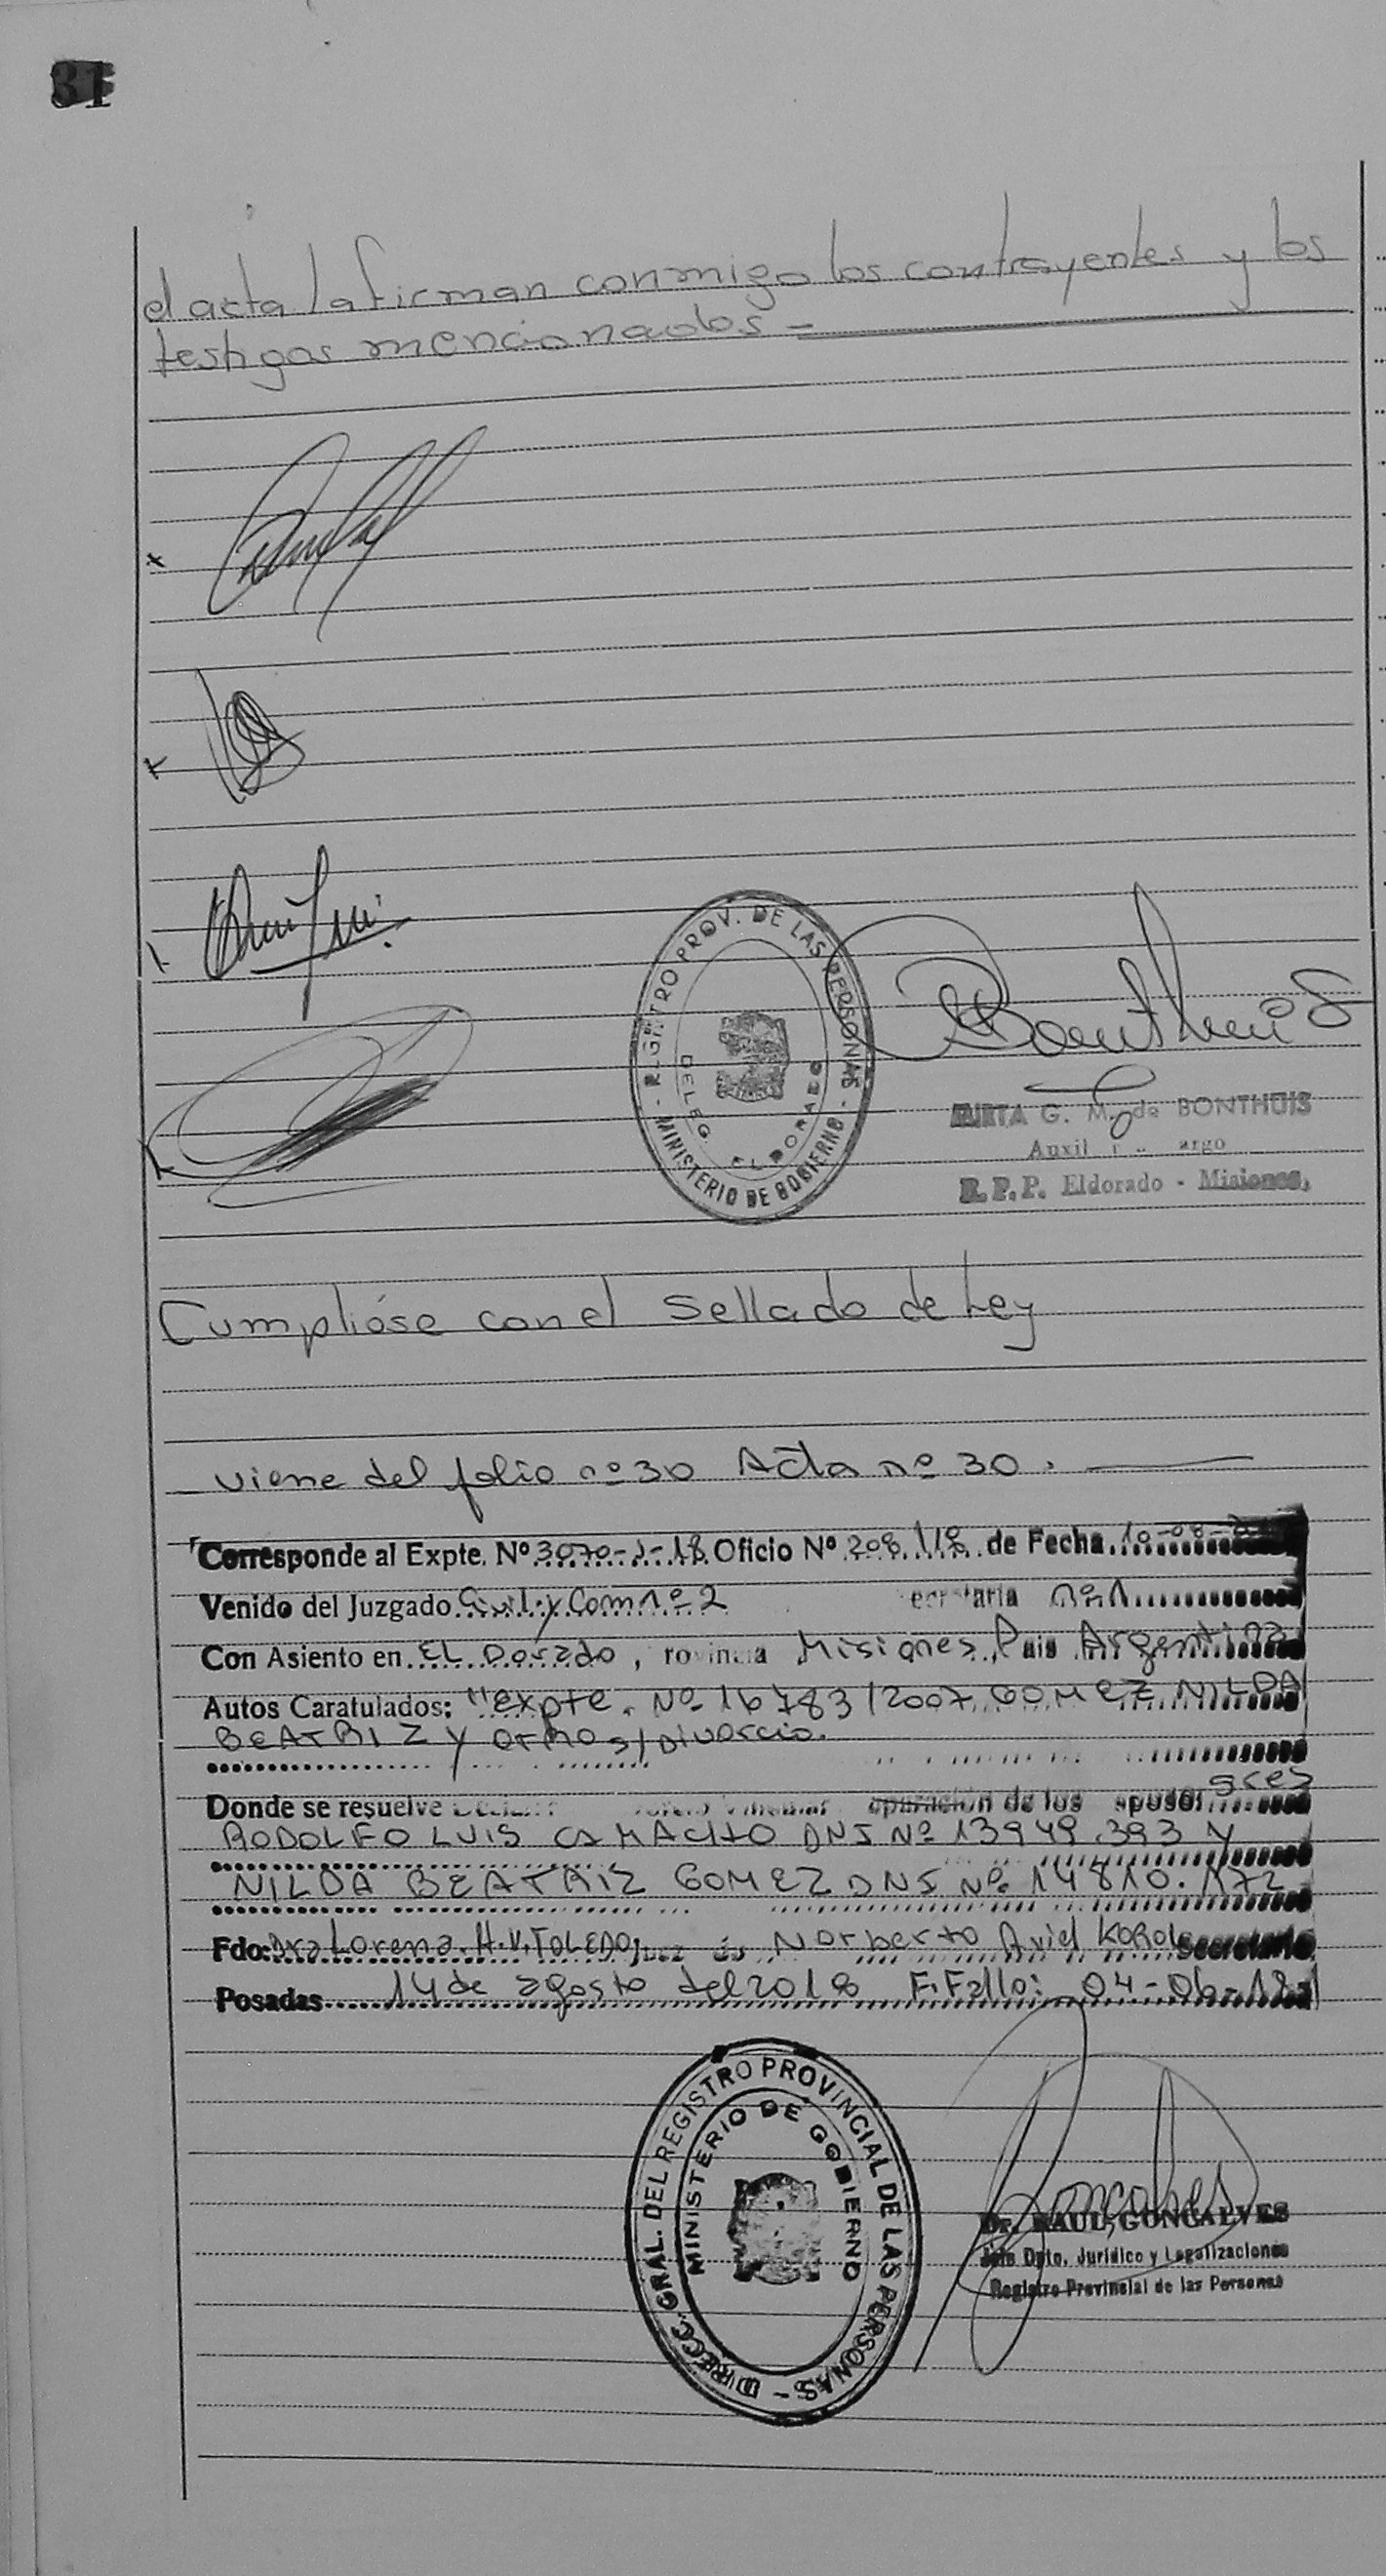 31
el acta la firman conmigo los contrayentes y los
testigos mencionados =
REGISTRO PROV. DE LAS PERSONAS
- MINISTERIO DE GOBIERNO -
DELEG. ELDORADO
Bonthuis
MIRTA G. M. de BONTHUIS
Auxil argo
R.P.P. Eldorado - Misiones,
Cumplióse con el Sellado de Ley
viene del folio nº 30 Acta nº 30.
Corresponde al Expte. Nº 3070-J-18 Oficio Nº 208/18 de Fecha 10-08-
Venido del Juzgado Civil y Com nº 2 ecretaria nº1
Con Asiento en EL Dorado, rovincia Misiones, Pais Argentina
Autos Caratulados: "expte. Nº 16783/2007 GOMEZ NILDA
BEATRIZ y OTRO s/Divorcio.
Donde se resuelve Vincular eparación de los sposos sres
RODOLFO LUIS CAMACHO DNI Nº 13949.393 y
NILDA BEATRIZ GOMEZ DNI Nº 14810.172
Fdo: Dra Lorena. H.V. TOLEDO, Juez Norberto Ariel KOROL Secretario
Posadas 14 de agosto del 2018 F. Fallo: 04-06-18
DIRECC. GRAL. DEL REGISTRO PROVINCIAL DE LAS PERSONAS -
MINISTERIO DE GOBIERNO
Goncalves
Dr. RAUL GONCALVES
Jefe Dpto. Jurídico y Legalizaciones
Registro Provincial de las Personas